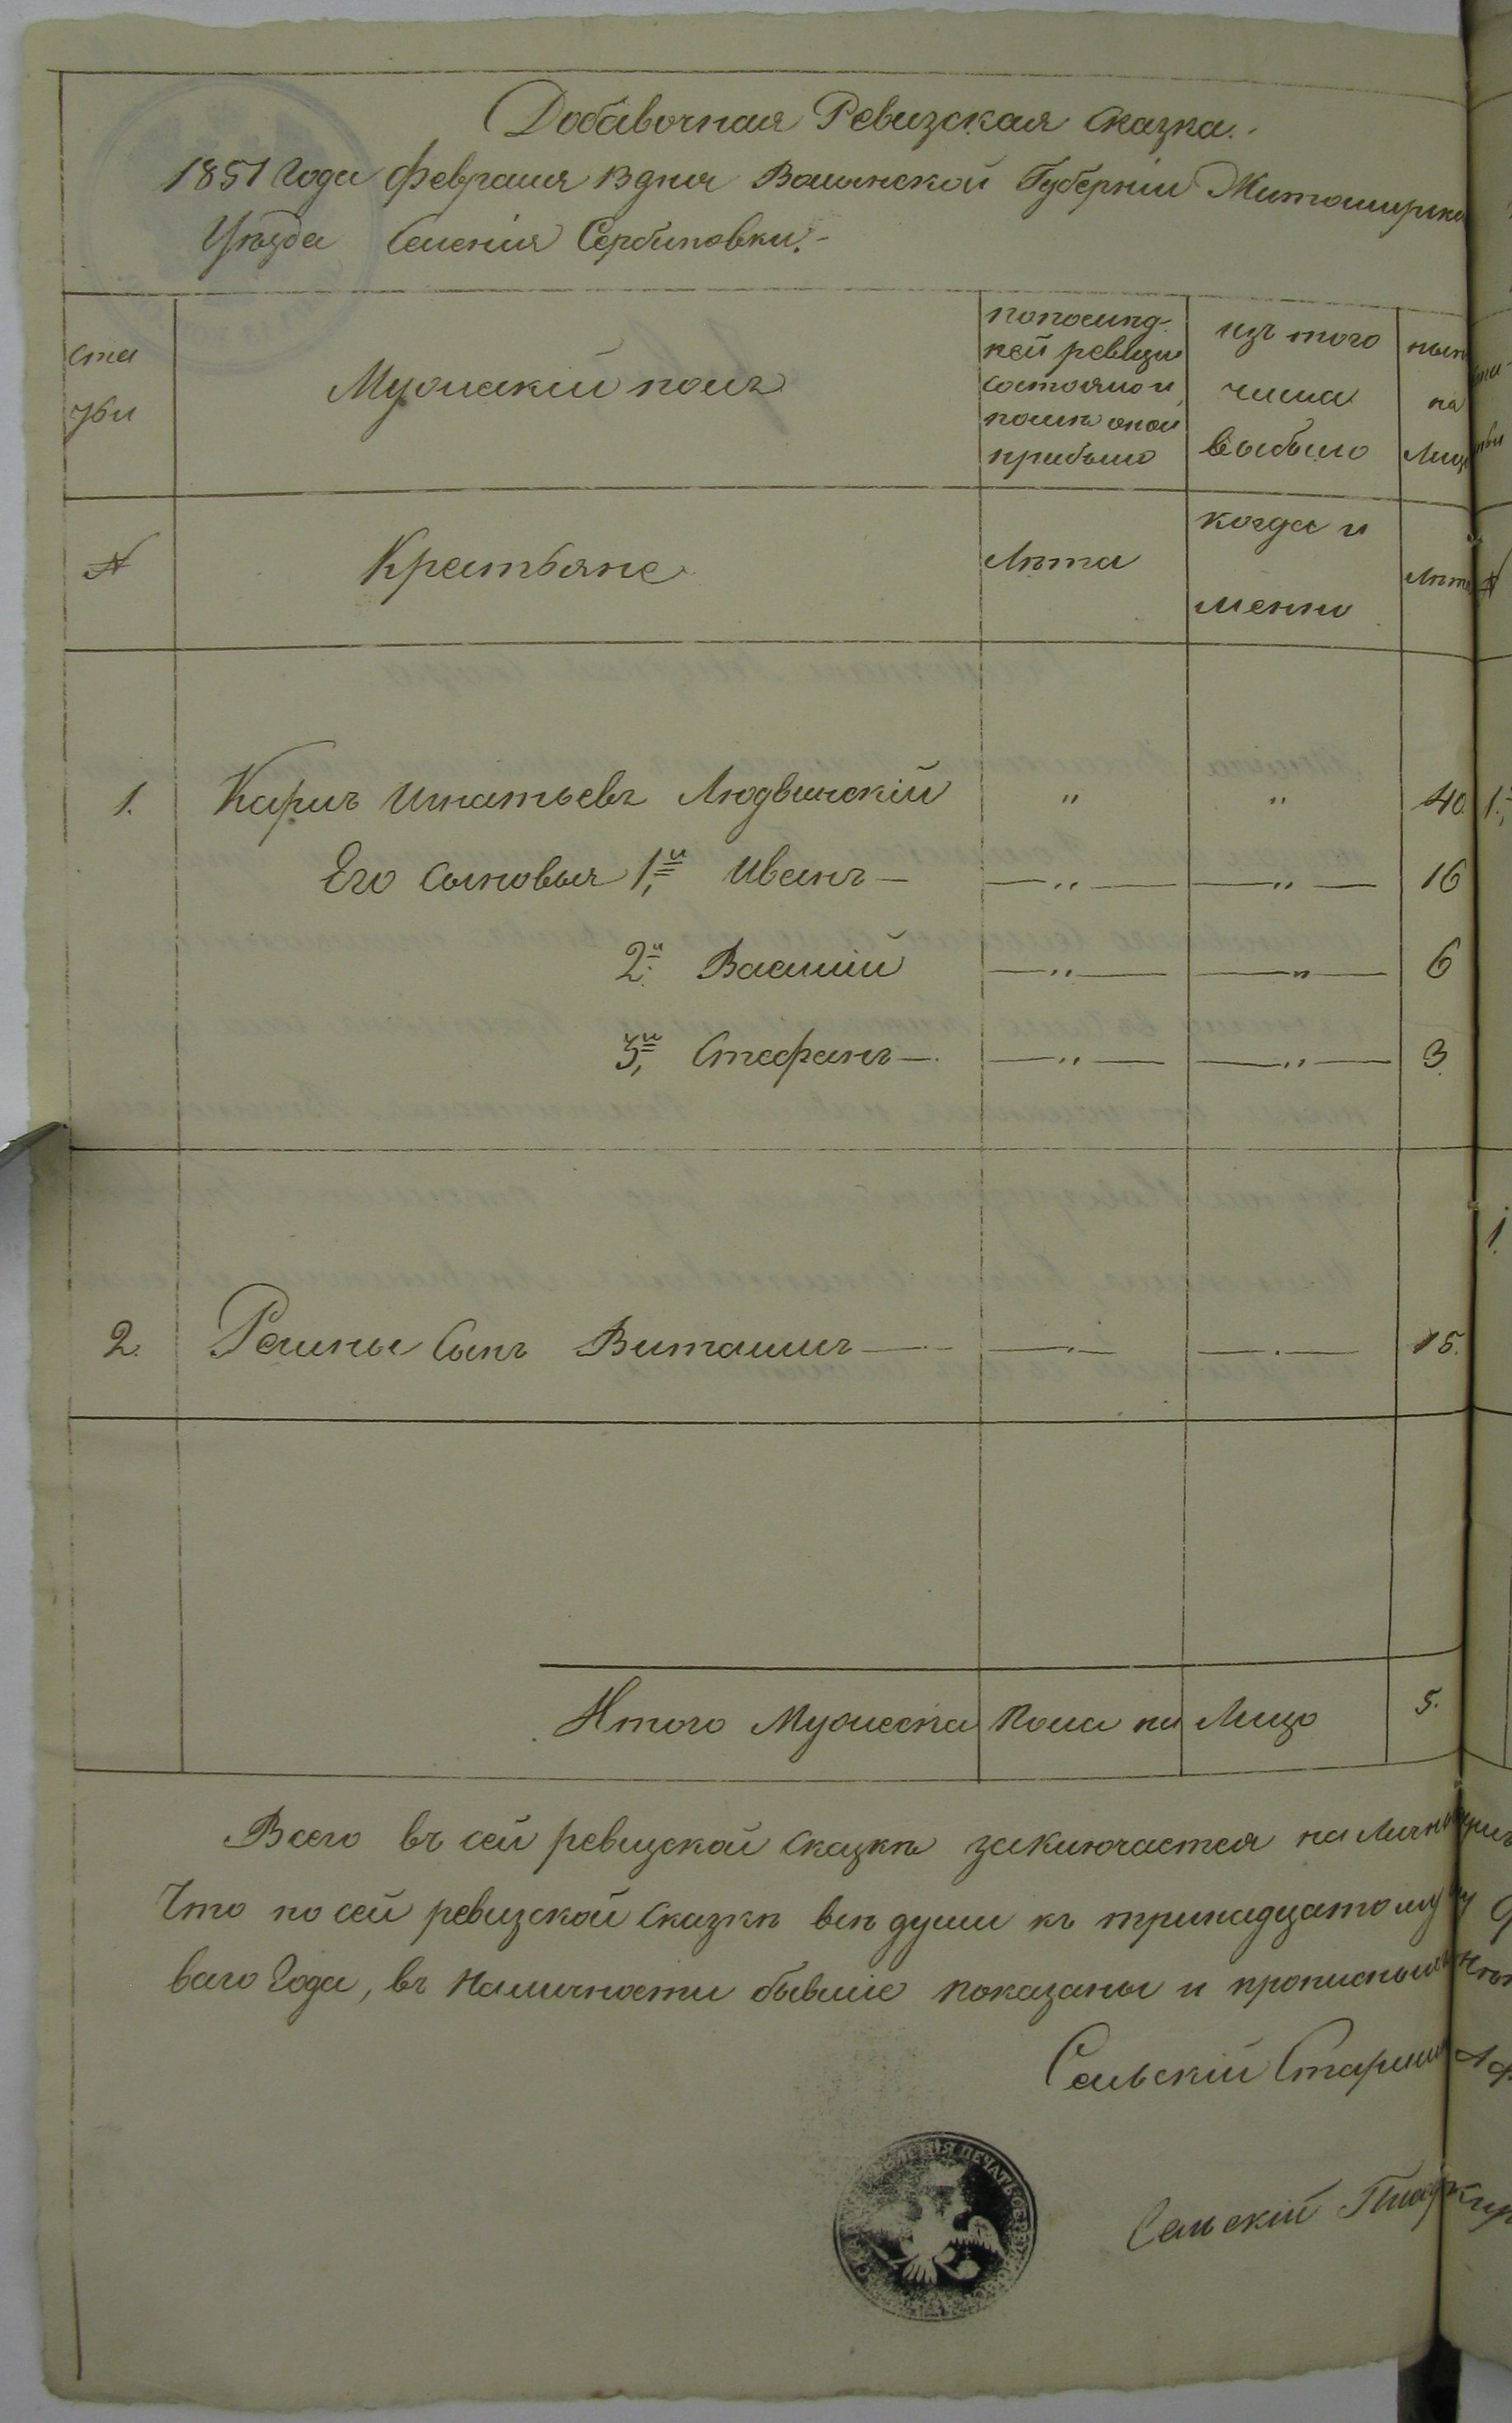 Добавочная Ревизская сказка.
1851 Года февраля 13 дня Волынской Губерніи Житомирска
Уѣзда Селенія Сербиновки.
ста
тьи
Мужескій полъ
по послѣд-
ней ревизіи
состояло и
послѣ оной
прибыло
изъ того
числа
выбыло
нынѣ
на
Лиц
№
Крестьяне
Лѣта
когда и
менно
Лѣта
1. Карлъ Игнатьевъ Людвинскій " " 40
Его сыновья 1й Иванъ — " — — " — 16
2й Василій — " — — " — 6
3й Стефанъ — " — — " — 3
2. Регины Сынъ Виталисъ — — — 15.
Итого Мужеска Пола на Лицо 5.
Всего въ сей ревизской сказкѣ заключается на Личн
Что по сей ревизской сказкѣ всѣ души къ тринадцатому
ваго Года, въ Наличности бывшіе показаны и прописны
Сельскій Старшин
Сельскій
ПЕЧАТЬ